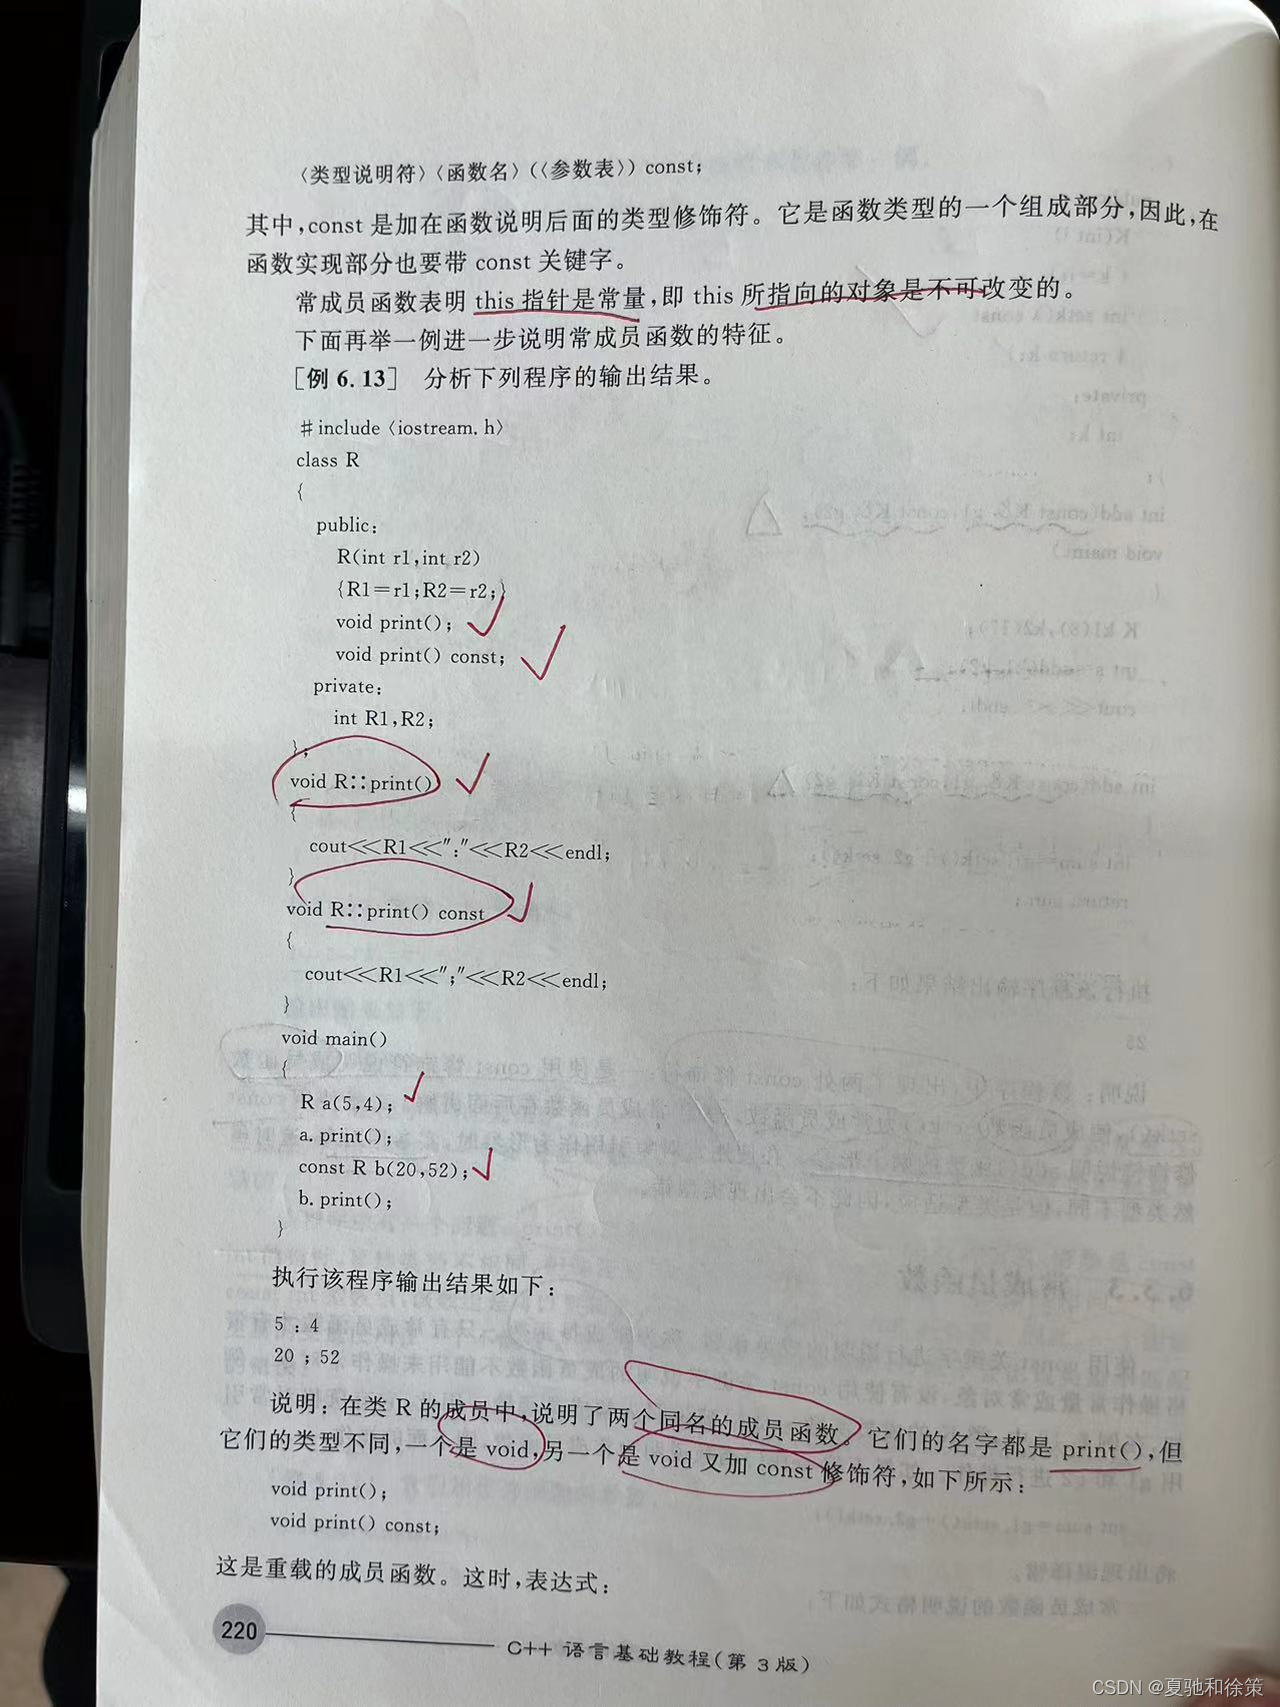 〈类型说明符〉〈函数名〉(〈参数表〉) const;
其中,const 是加在函数说明后面的类型修饰符。它是函数类型的一个组成部分,因此,在
函数实现部分也要带 const 关键字。
常成员函数表明 this 指针是常量,即 this 所指向的对象是不可改变的。
下面再举一例进一步说明常成员函数的特征。
[例 6.13] 分析下列程序的输出结果。
#include 〈iostream.h〉
class R
{
public:
R(int r1,int r2)
{R1=r1;R2=r2;}
void print();
void print() const;
private:
int R1,R2;
};
void R::print()
{
cout<<R1<<":"<<R2<<endl;
}
void R::print() const
{
cout<<R1<<";"<<R2<<endl;
}
void main()
{
R a(5,4);
a.print();
const R b(20,52);
b.print();
}
执行该程序输出结果如下:
5 : 4
20 ; 52
说明: 在类 R 的成员中,说明了两个同名的成员函数。它们的名字都是 print(),但
它们的类型不同,一个是 void,另一个是 void 又加 const 修饰符,如下所示:
void print();
void print() const;
这是重载的成员函数。这时,表达式:
220
C++ 语言基础教程(第 3 版)
CSDN @夏驰和徐策